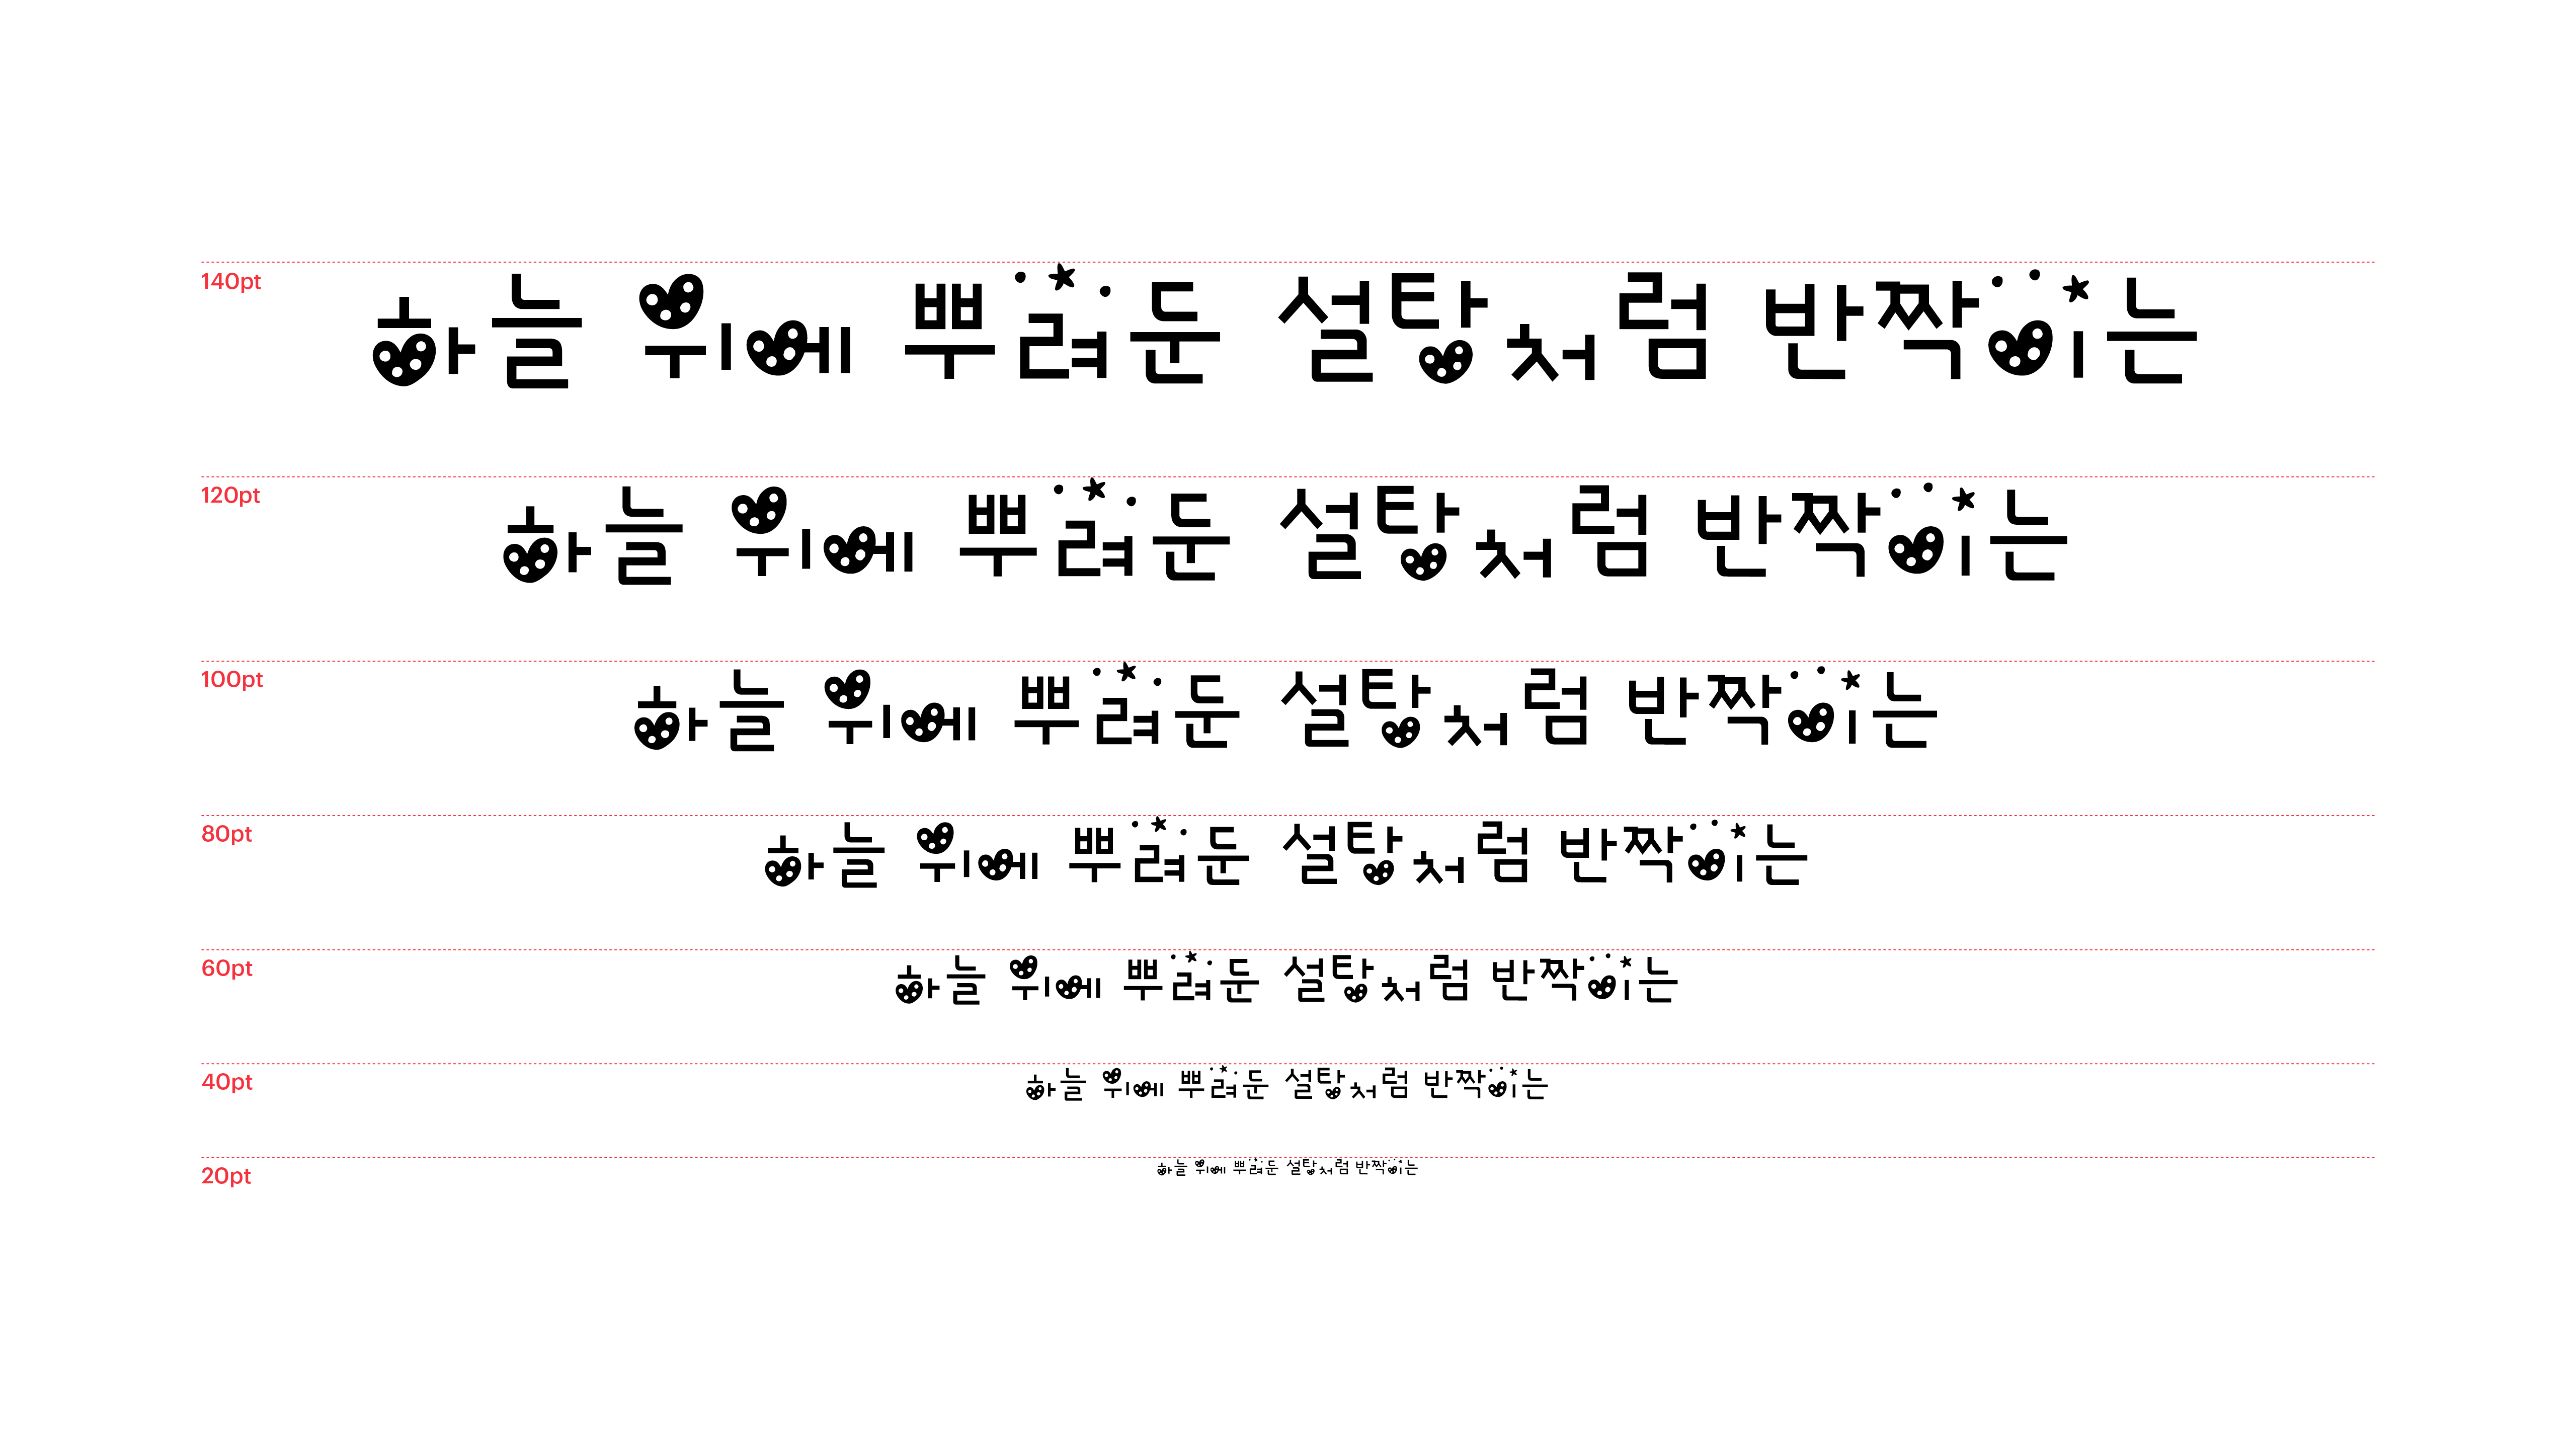 140pt
하늘 위에 뿌려둔 설탕처럼 반짝이는
120pt
하늘 위에 뿌려둔 설탕처럼 반짝이는
100pt
하늘 위에 뿌려둔 설탕처럼 반짝이는
80pt
하늘 위에 뿌려둔 설탕처럼 반짝이는
60pt
하늘 위에 뿌려둔 설탕처럼 반짝이는
40pt
하늘 위에 뿌려둔 설탕처럼 반짝이는
20pt
하늘 위에 뿌려둔 설탕처럼 반짝이는